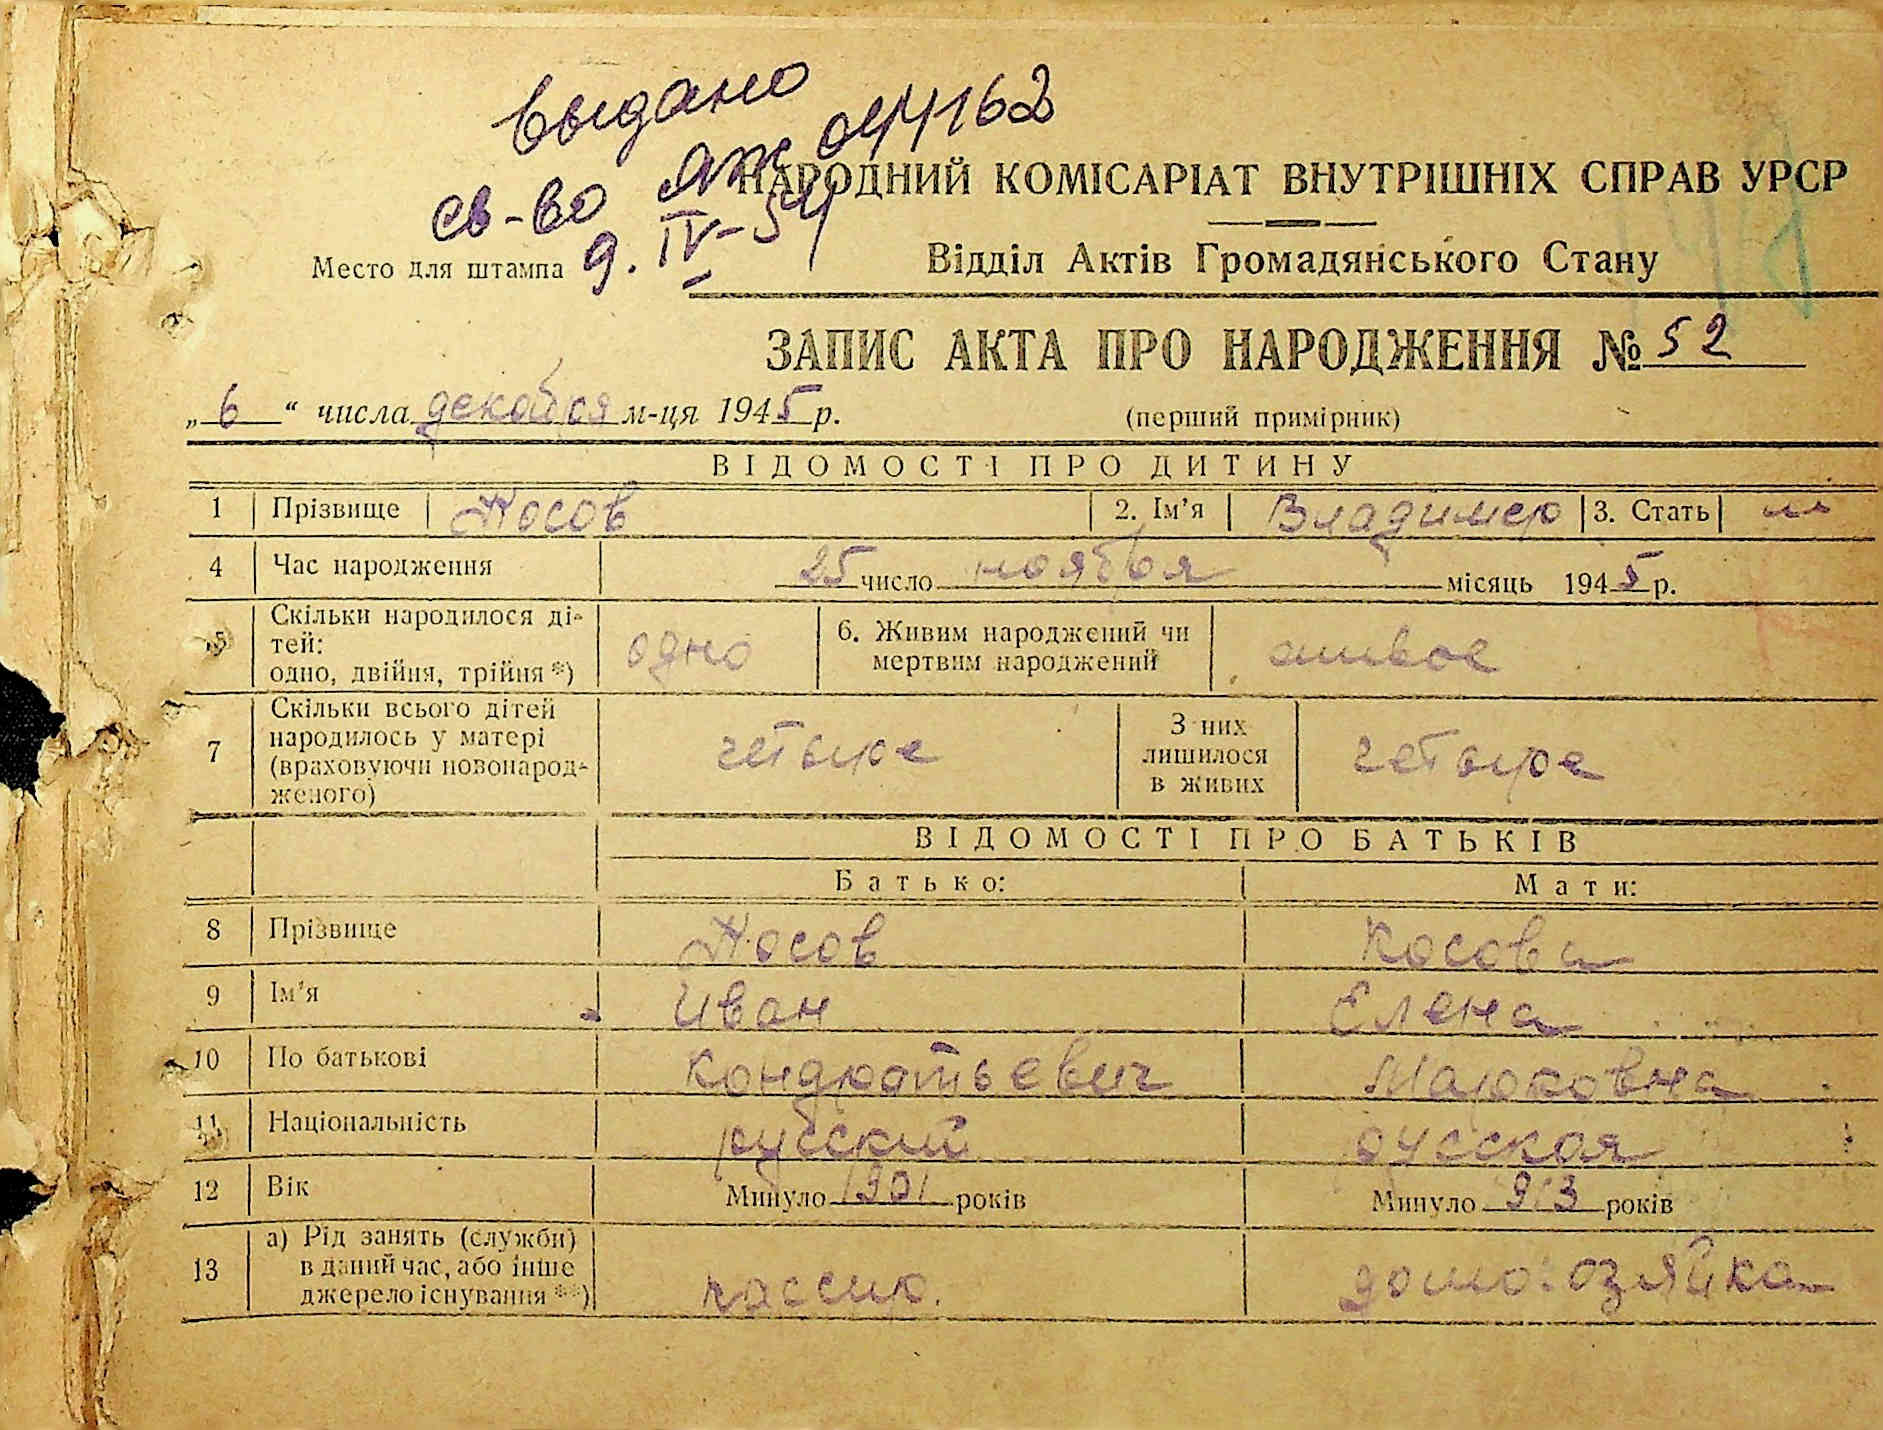 выдано
св-во ЯЖ 044162
9. IV-54
НАРОДНИЙ КОМІСАРІАТ ВНУТРІШНІХ СПРАВ УРСР
Место для штампа
Відділ Актів Громадянського Стану
ЗАПИС АКТА ПРО НАРОДЖЕННЯ № 52
„ 6 “ числа декабря м-ця 1945 р.
(перший примірник)
ВІДОМОСТІ ПРО ДИТИНУ
1 Прізвище Носов 2. Ім’я Владимер 3. Стать м
4 Час народження 25 число ноября місяць 1945 р.
5 Скільки народилося ді-
тей:
одно, двійня, трійня *) одно
6. Живим народжений чи
мертвим народжений живое
7 Скільки всього дітей
народилось у матері
(враховуючи новонарод-
женого) четыре
З них
лишилося
в живих четыре
ВІДОМОСТІ ПРО БАТЬКІВ
Батько: Мати:
8 Прізвище Носов Косова
9 Ім’я Иван Елена
10 По батькові Кондратьевич Марковна
11 Національність русский русская
12 Вік Минуло 1901 років Минуло 913 років
13 а) Рід занять (служби)
в даний час, або інше
джерело існування **) кассир. домохозяйка